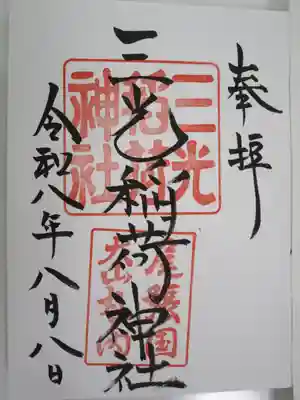 奉拝
三光稲荷神社
令和八年八月八日
三光
稲荷
神社
尾張国
犬山城内